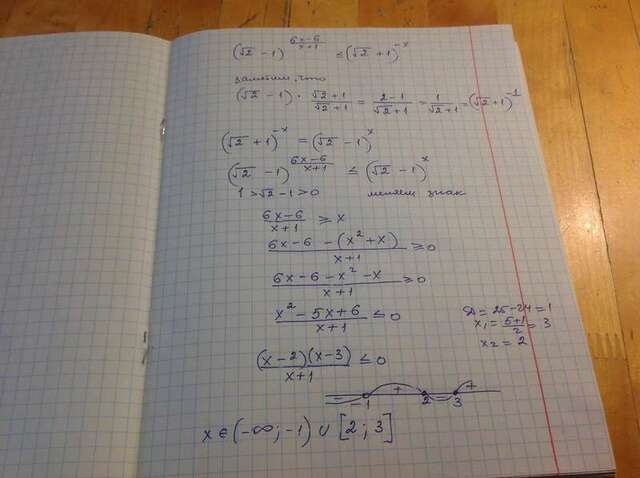 (√2 - 1)^((6x-6)/(x+1)) ≤ (√2 + 1)^(-x)
заметим, что
(√2 - 1) · (√2 + 1)/(√2 + 1) = (2-1)/(√2 + 1) = 1/(√2 + 1) = (√2 + 1)^(-1)
(√2 + 1)^(-x) = (√2 - 1)^x
(√2 - 1)^((6x-6)/(x+1)) ≤ (√2 - 1)^x
1 > √2 - 1 > 0 меняем знак
(6x-6)/(x+1) ≥ x
(6x-6 - (x² + x))/(x+1) ≥ 0
(6x-6-x²-x)/(x+1) ≥ 0
(x² - 5x + 6)/(x+1) ≤ 0
D = 25-24 = 1
x₁ = (5+1)/2 = 3
x₂ = 2
(x-2)(x-3)/(x+1) ≤ 0
- + - +
-1 2 3
x ∈ (-∞; -1) ∪ [2; 3]